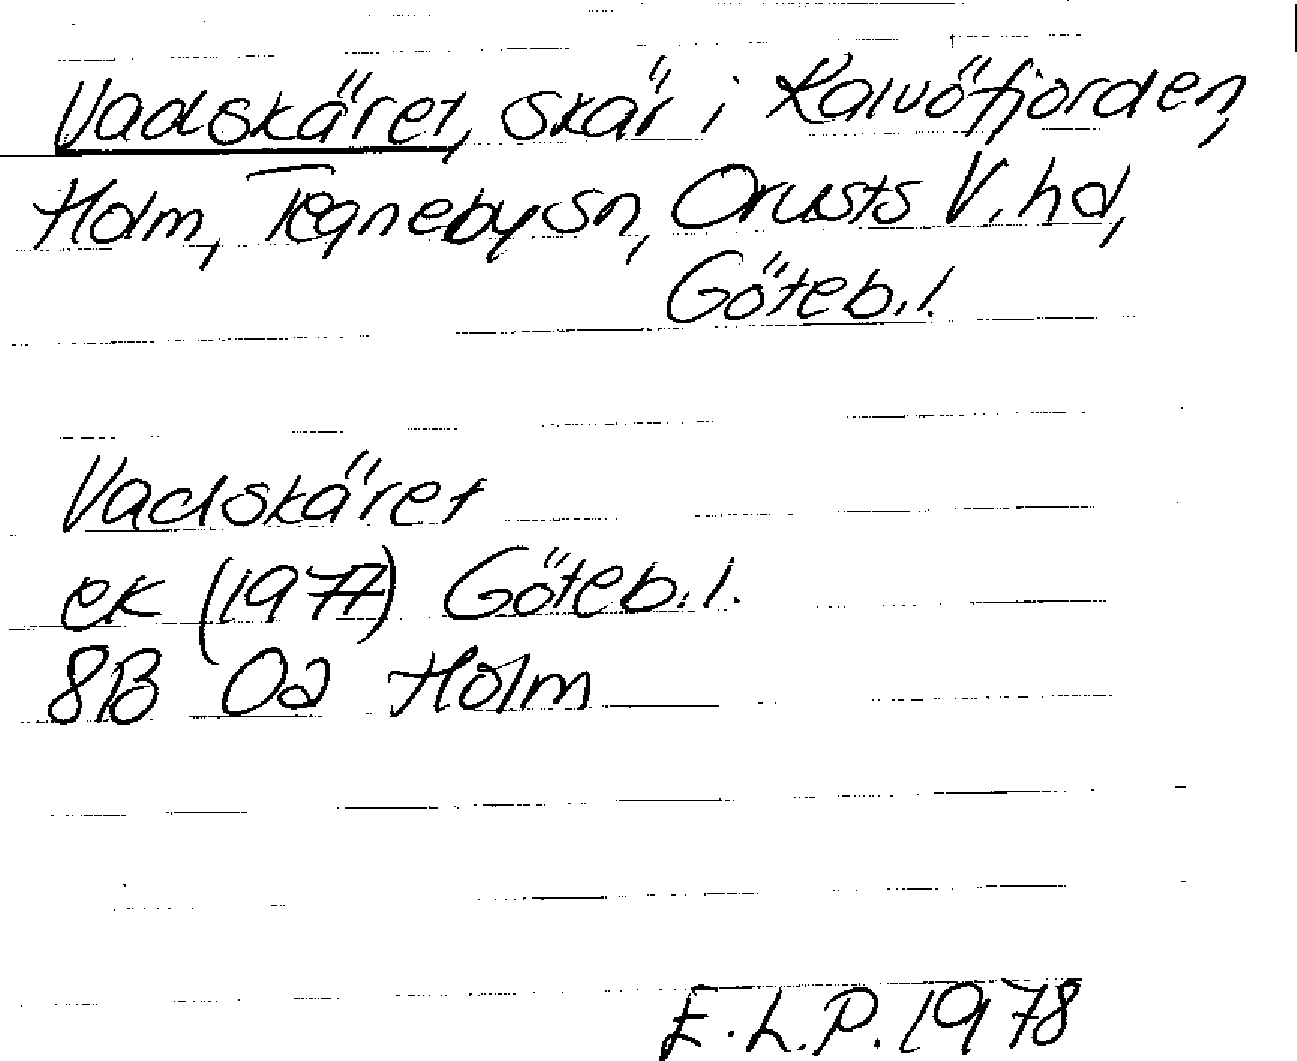 Vadskäret, skär i Kalvöfjorden,
Holm, Tegneby sn, Orusts V. hd,
Göteb. l.
Vadskäret
ek (1977) Göteb. l.
8B 0a Holm
E.L.P. 1978